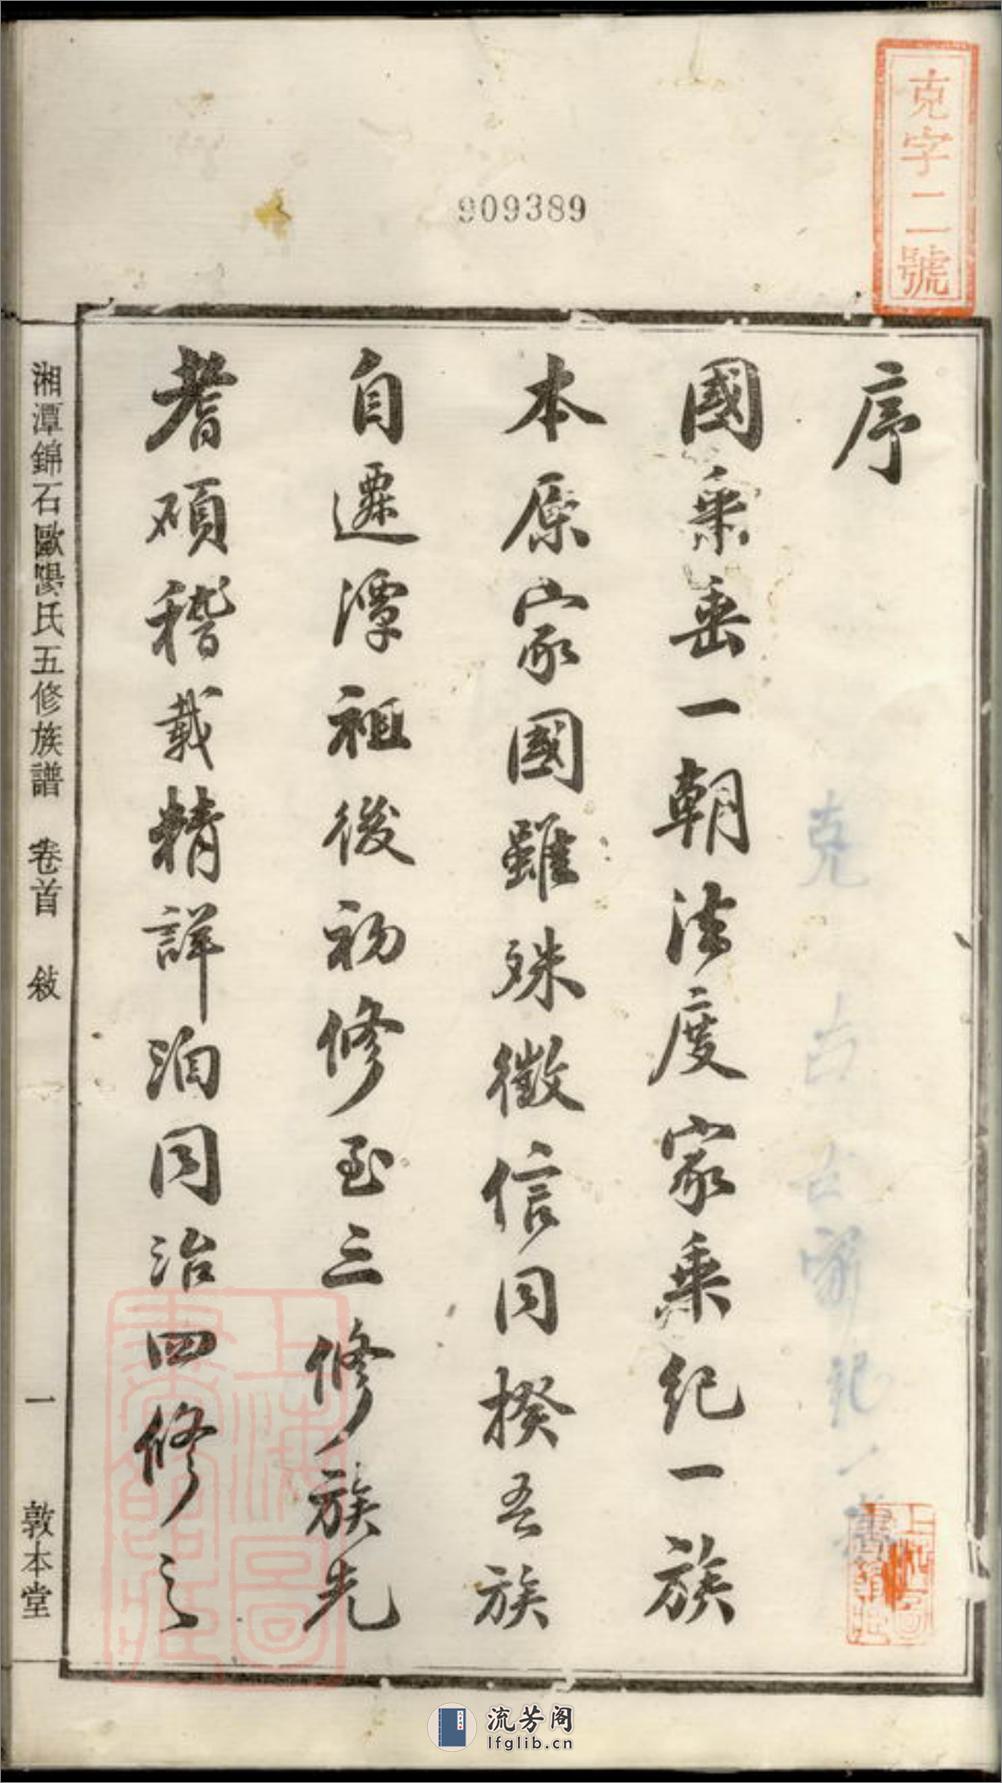 克字二號
909389
序
國乘垂一朝法度家乘紀一族
本原家國雖殊徵信同揆吾族
自遷潭祖後初修至三修族先
耆碩稽載精詳洎同治四修之
湘潭錦石歐陽氏五修族譜 卷首 敍 一 敦本堂
上海圖書館藏
流芳阁
lfglib.cn